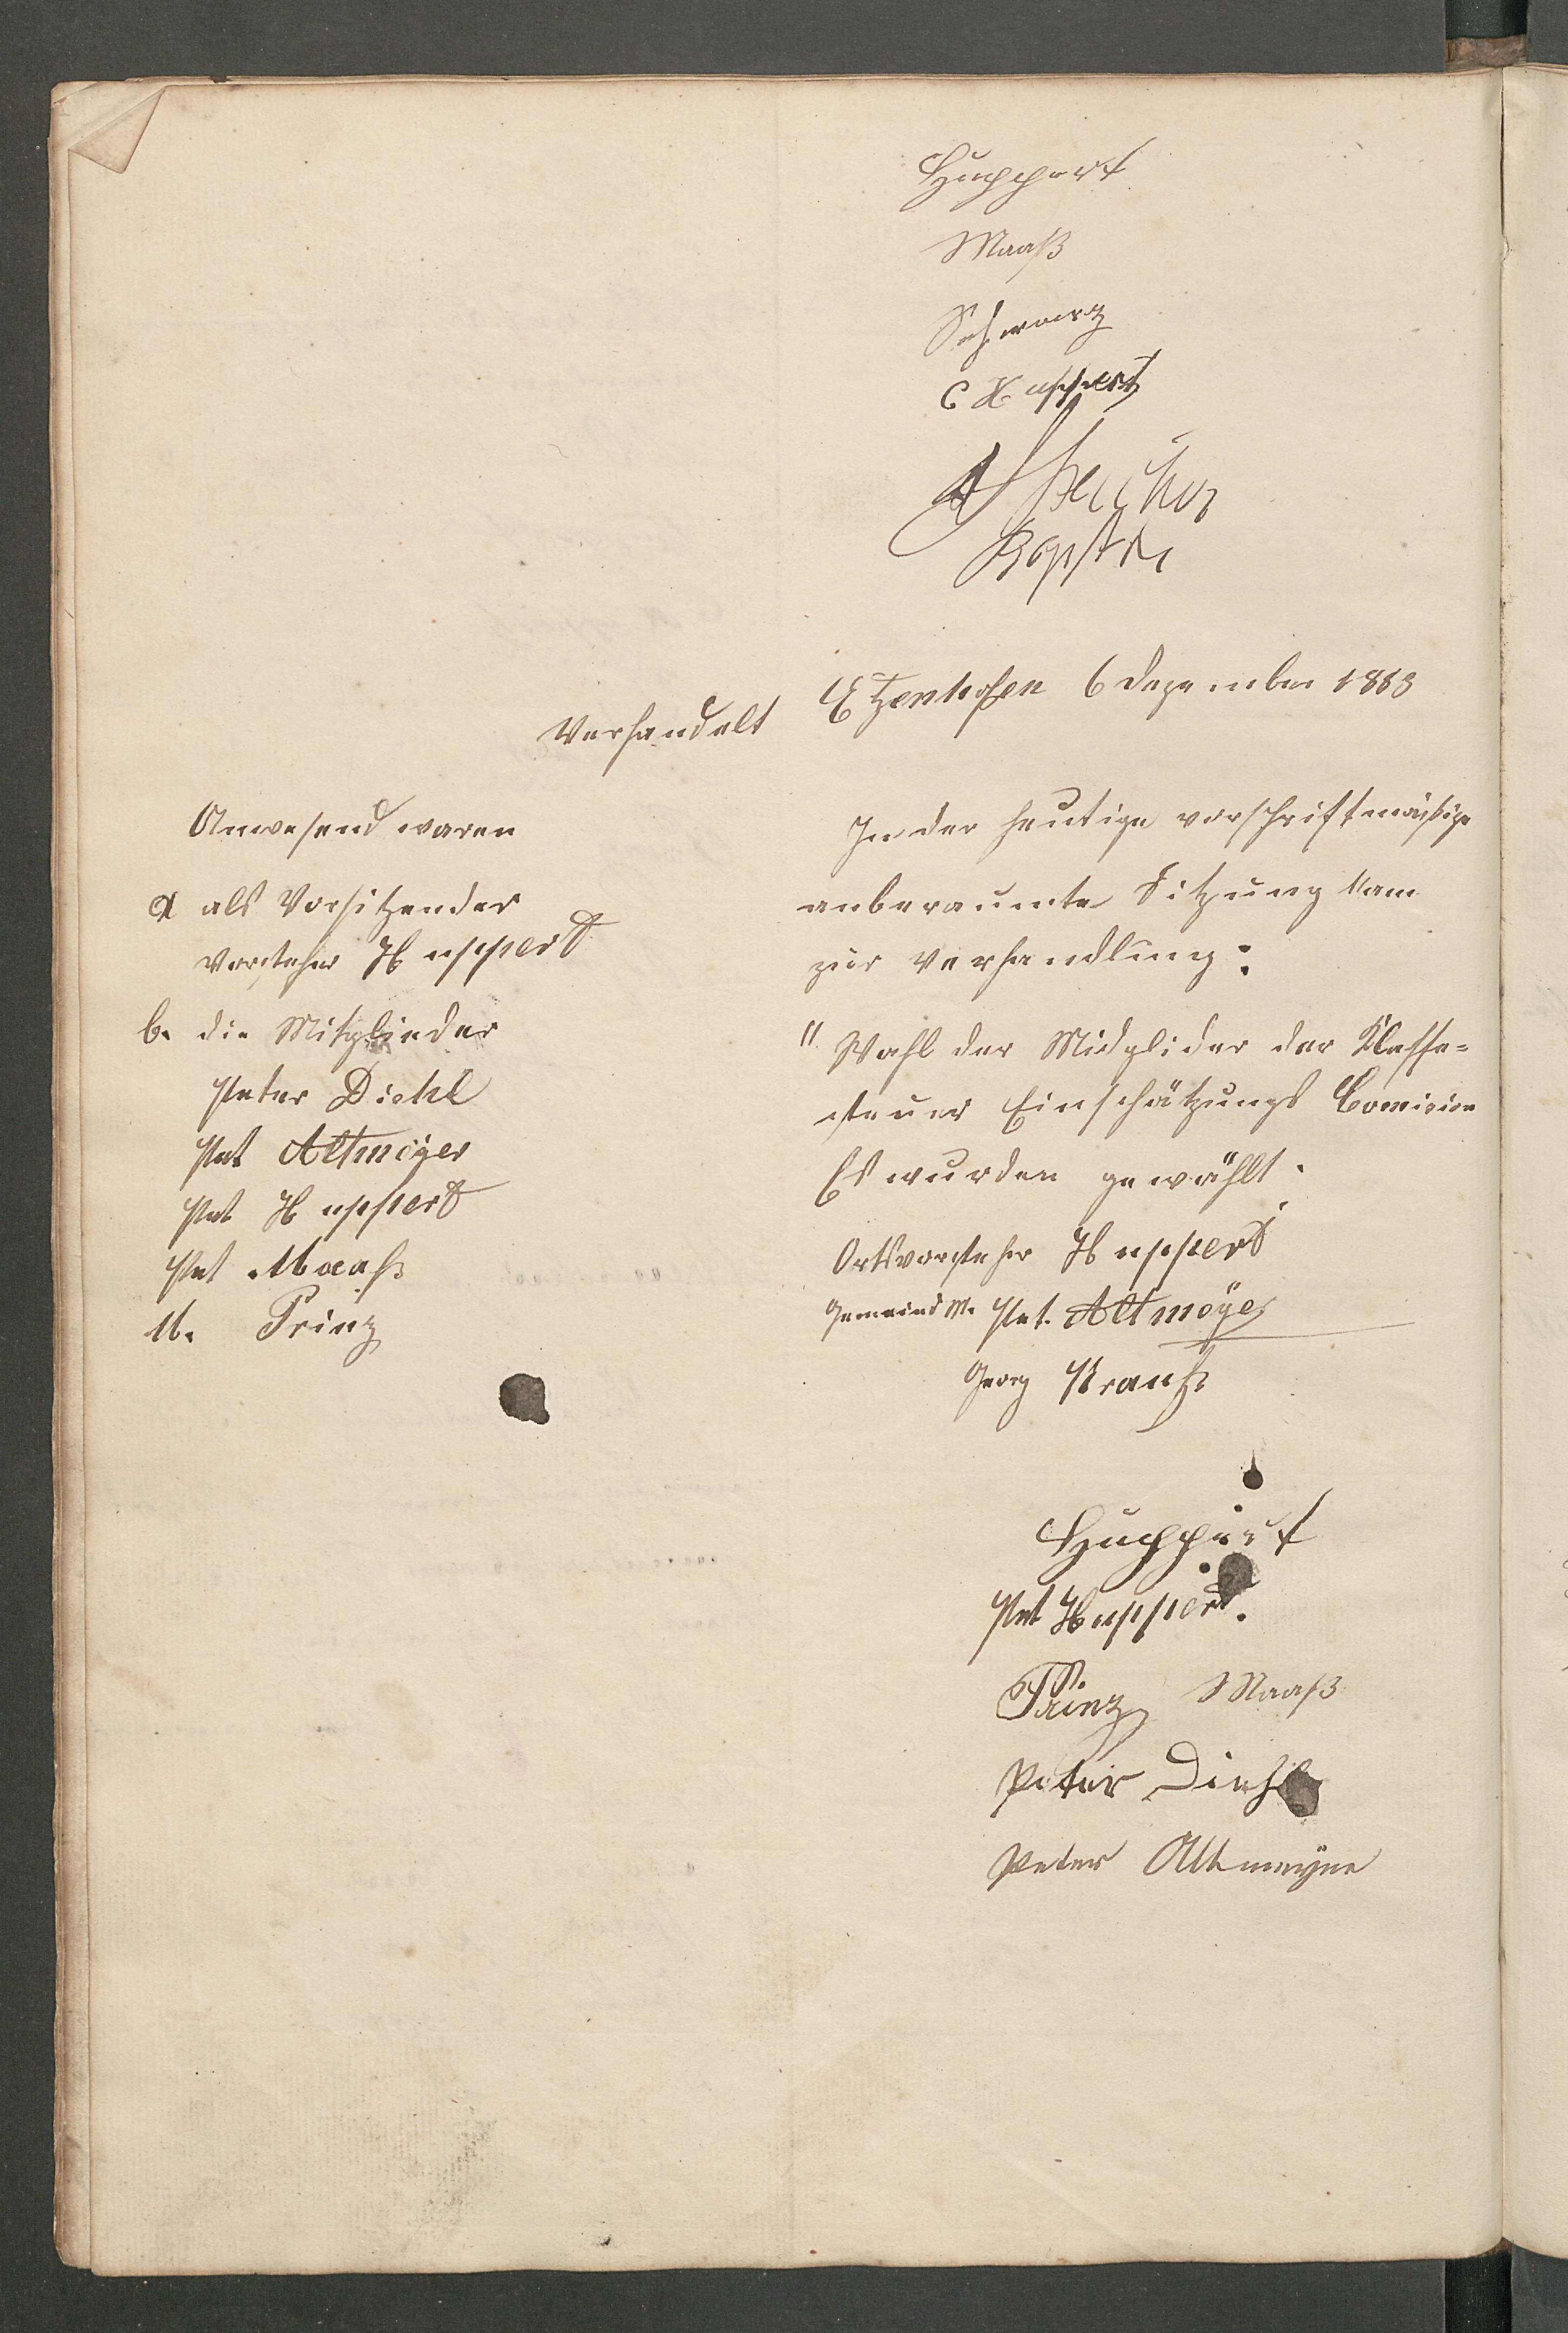 Huppert
Maaß
Schwarz
C Huppert
Verhandelt Etzenhofen 6 Dezember 1883
Anwesend waren
a als Vorsitzender
Vorsteher Huppert
b. die Mitglieder
Peter Diehl
Pet Altmeÿer
Pet Huppert
Pet Maaß
M. Prinz
In der heutige vorschriftmäßige
anberaumte Sitzung kam
zur Verhandlung:
" Wahl der Midglider der Klasse-
steuer Einschätzungs Comision
Es wurden gewählt.
Ortsvorsteher Huppert
Gemeind M. Pet. Altmeÿer
Georg Krauß
Huppert
Pet Huppert.
Prinz Maaß
Peter Diehl
Peter Altmeyer